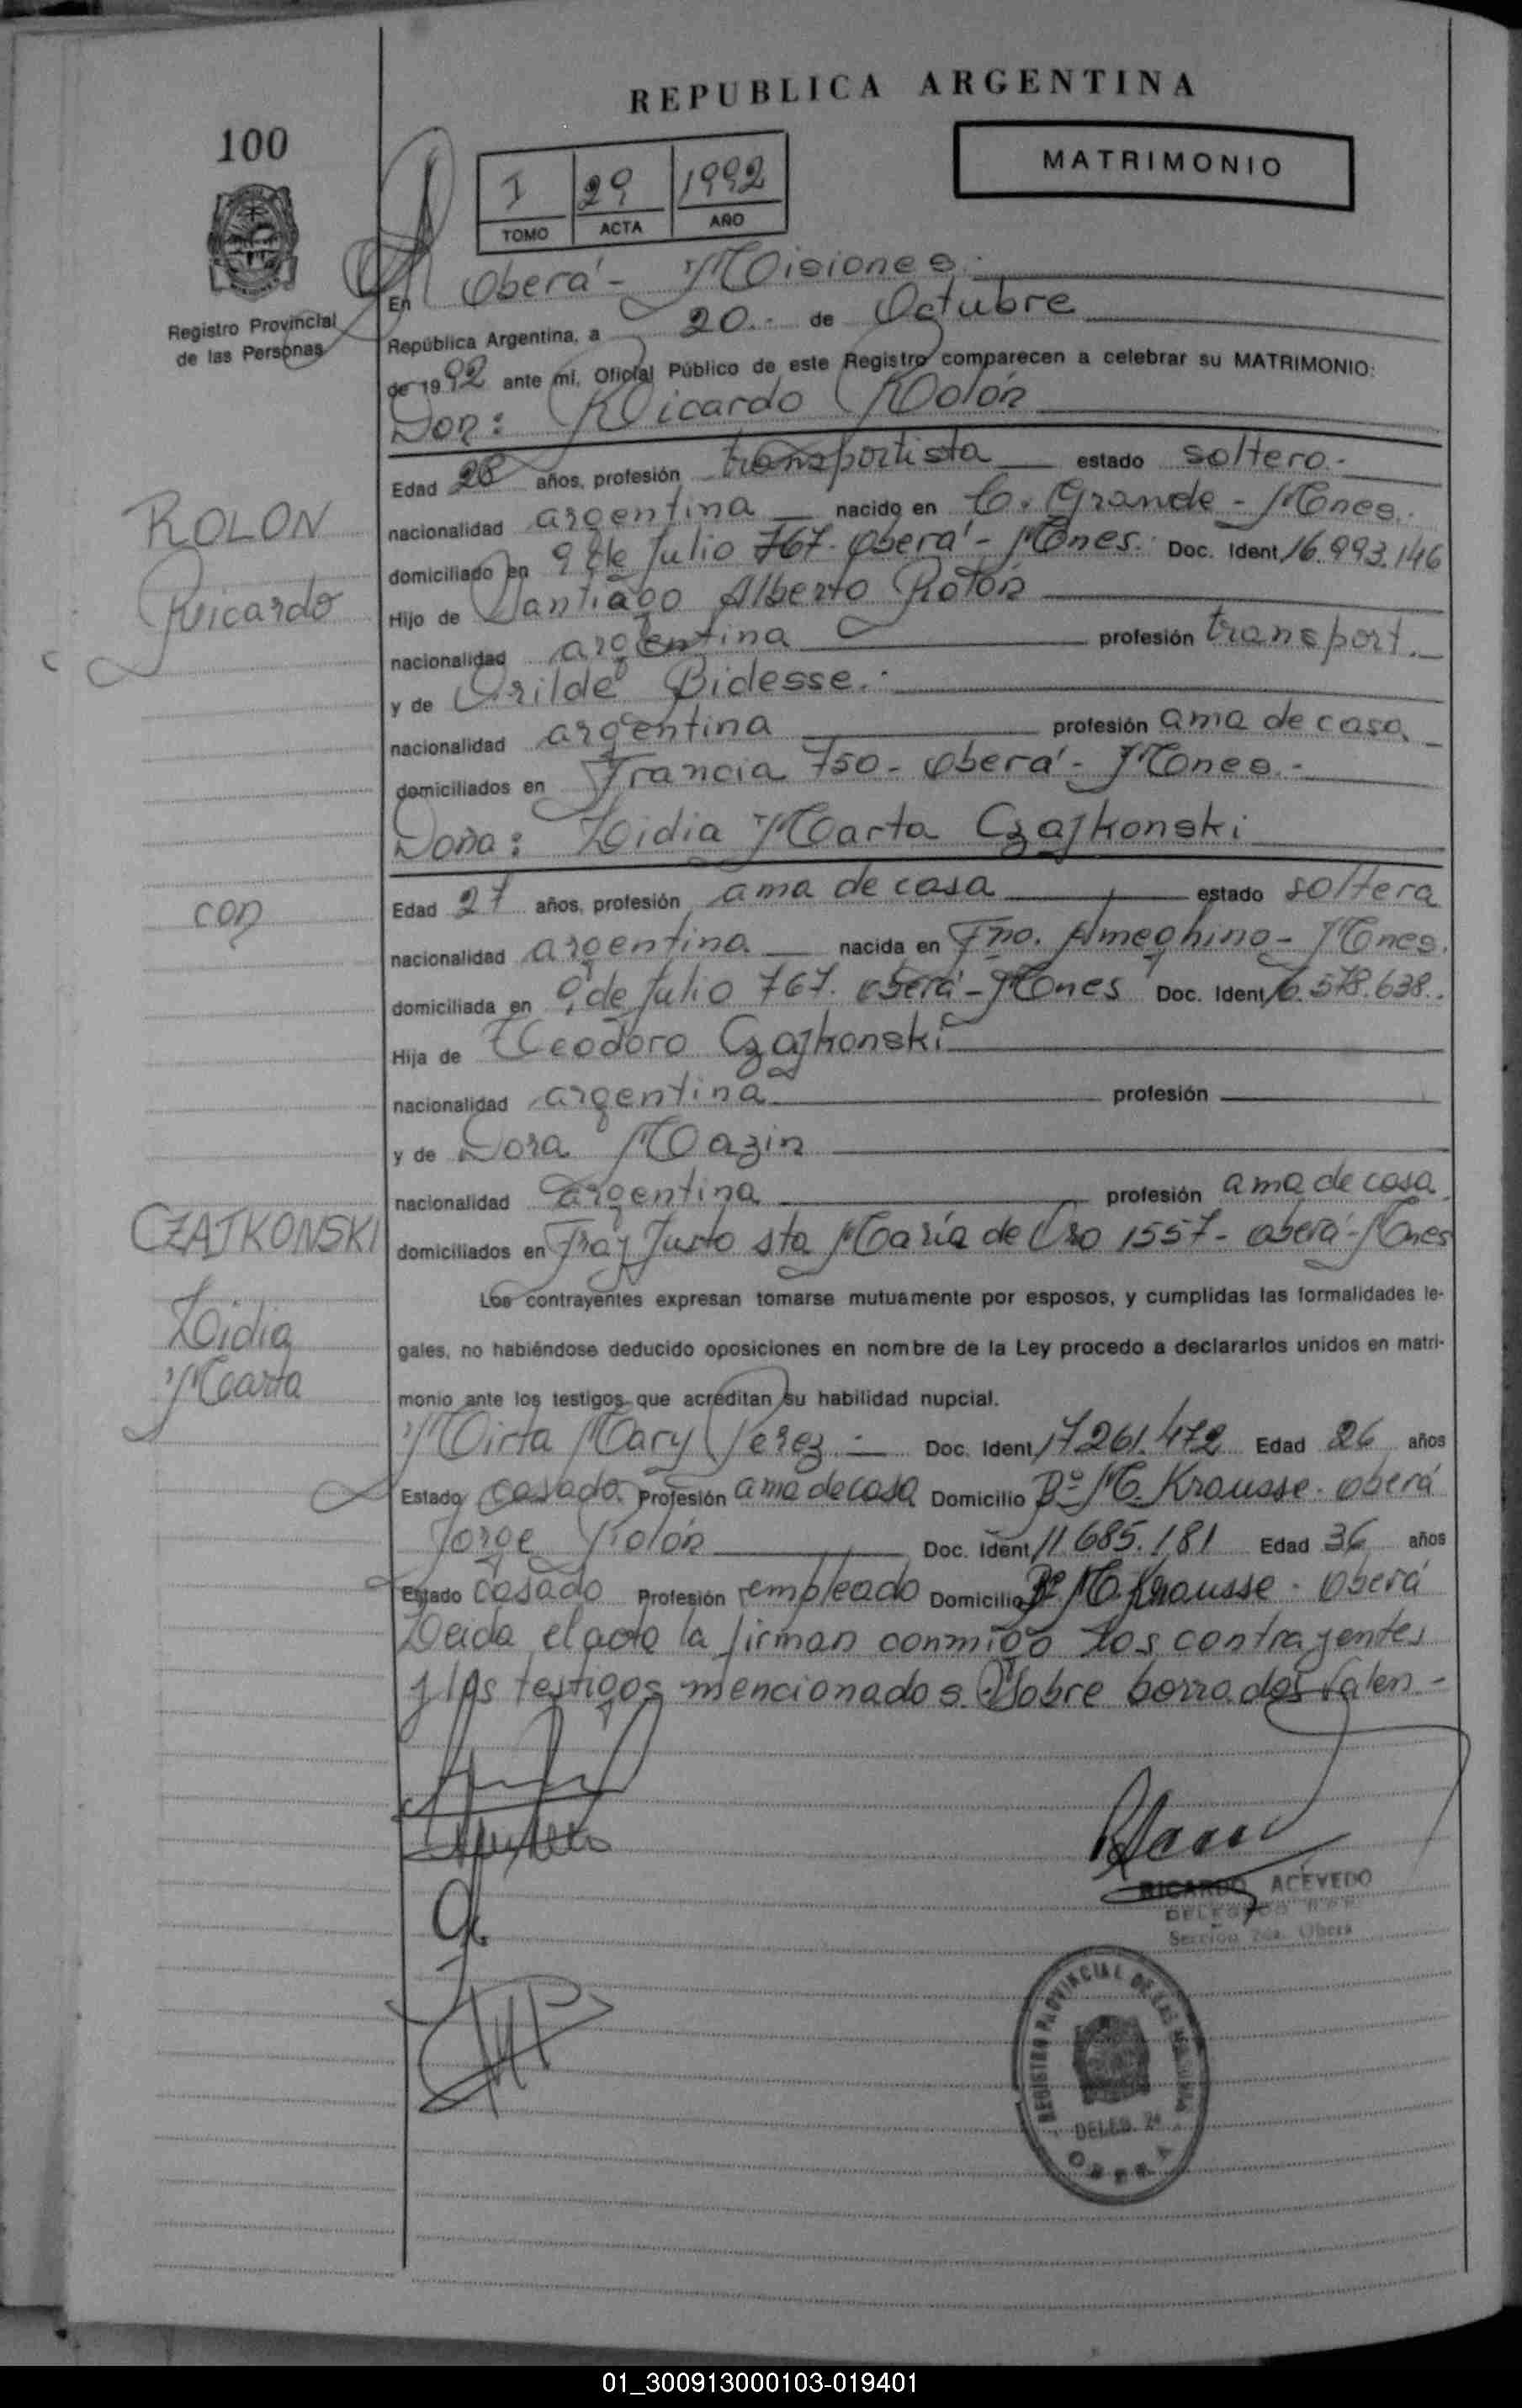 REPUBLICA ARGENTINA
100
MATRIMONIO
I 29 1992
TOMO ACTA AÑO
Registro Provincial
de las Personas
En Oberá - Misiones.
República Argentina, a 20.- de Octubre
de 1992 ante mí, Oficial Público de este Registro comparecen a celebrar su MATRIMONIO:
Don: Ricardo Rolón
Edad 28 años, profesión transportista estado soltero.-
ROLON
nacionalidad argentina nacido en C. Grande - Mnes.
domiciliado en 9 de Julio 767. Oberá - Mnes. Doc. Ident. 16.993.146
Ricardo
Hijo de Santiago Alberto Rolón
nacionalidad argentina profesión transport.
y de Orilde Bidesse.-
nacionalidad argentina profesión ama de casa
domiciliados en Francia 750 - Oberá - Mnes.-
Doña: Lidia Marta Czajkonski
Edad 27 años, profesión ama de casa estado soltera
con
nacionalidad argentina nacida en Fno. Ameghino - Mnes.
domiciliada en 9 de Julio 767. Oberá - Mnes Doc. Ident. 578.638.
Hija de Teodoro Czajkonski
nacionalidad argentina profesión
y de Dora Mazin
nacionalidad argentina profesión ama de casa
CZAJKONSKI
domiciliados en Fray Justo Sta María de Oro 1557 - Oberá - Mnes
Los contrayentes expresan tomarse mutuamente por esposos, y cumplidas las formalidades le-
Lidia
gales, no habiéndose deducido oposiciones en nombre de la Ley procedo a declararlos unidos en matri-
Marta
monio ante los testigos que acreditan su habilidad nupcial.
Mirta Mary Perez.- Doc. Ident. 17.261.472 Edad 26 años
Estado casada. Profesión ama de casa Domicilio Bº M. Krausse. Oberá
Jorge Rolón Doc. Ident. 11.685.181 Edad 36 años
Estado casado Profesión empleado Domicilio Bº M. Krausse. Oberá
Leida el acta la firman conmigo los contrayentes
y los testigos mencionados. Sobre borrados valen -
RICARDO ACEVEDO
DELEGADO
Sección 2da. Oberá
REGISTRO PROVINCIAL DE LAS PERSONAS
DELEG. 2ª
OBERA
01_300913000103-019401